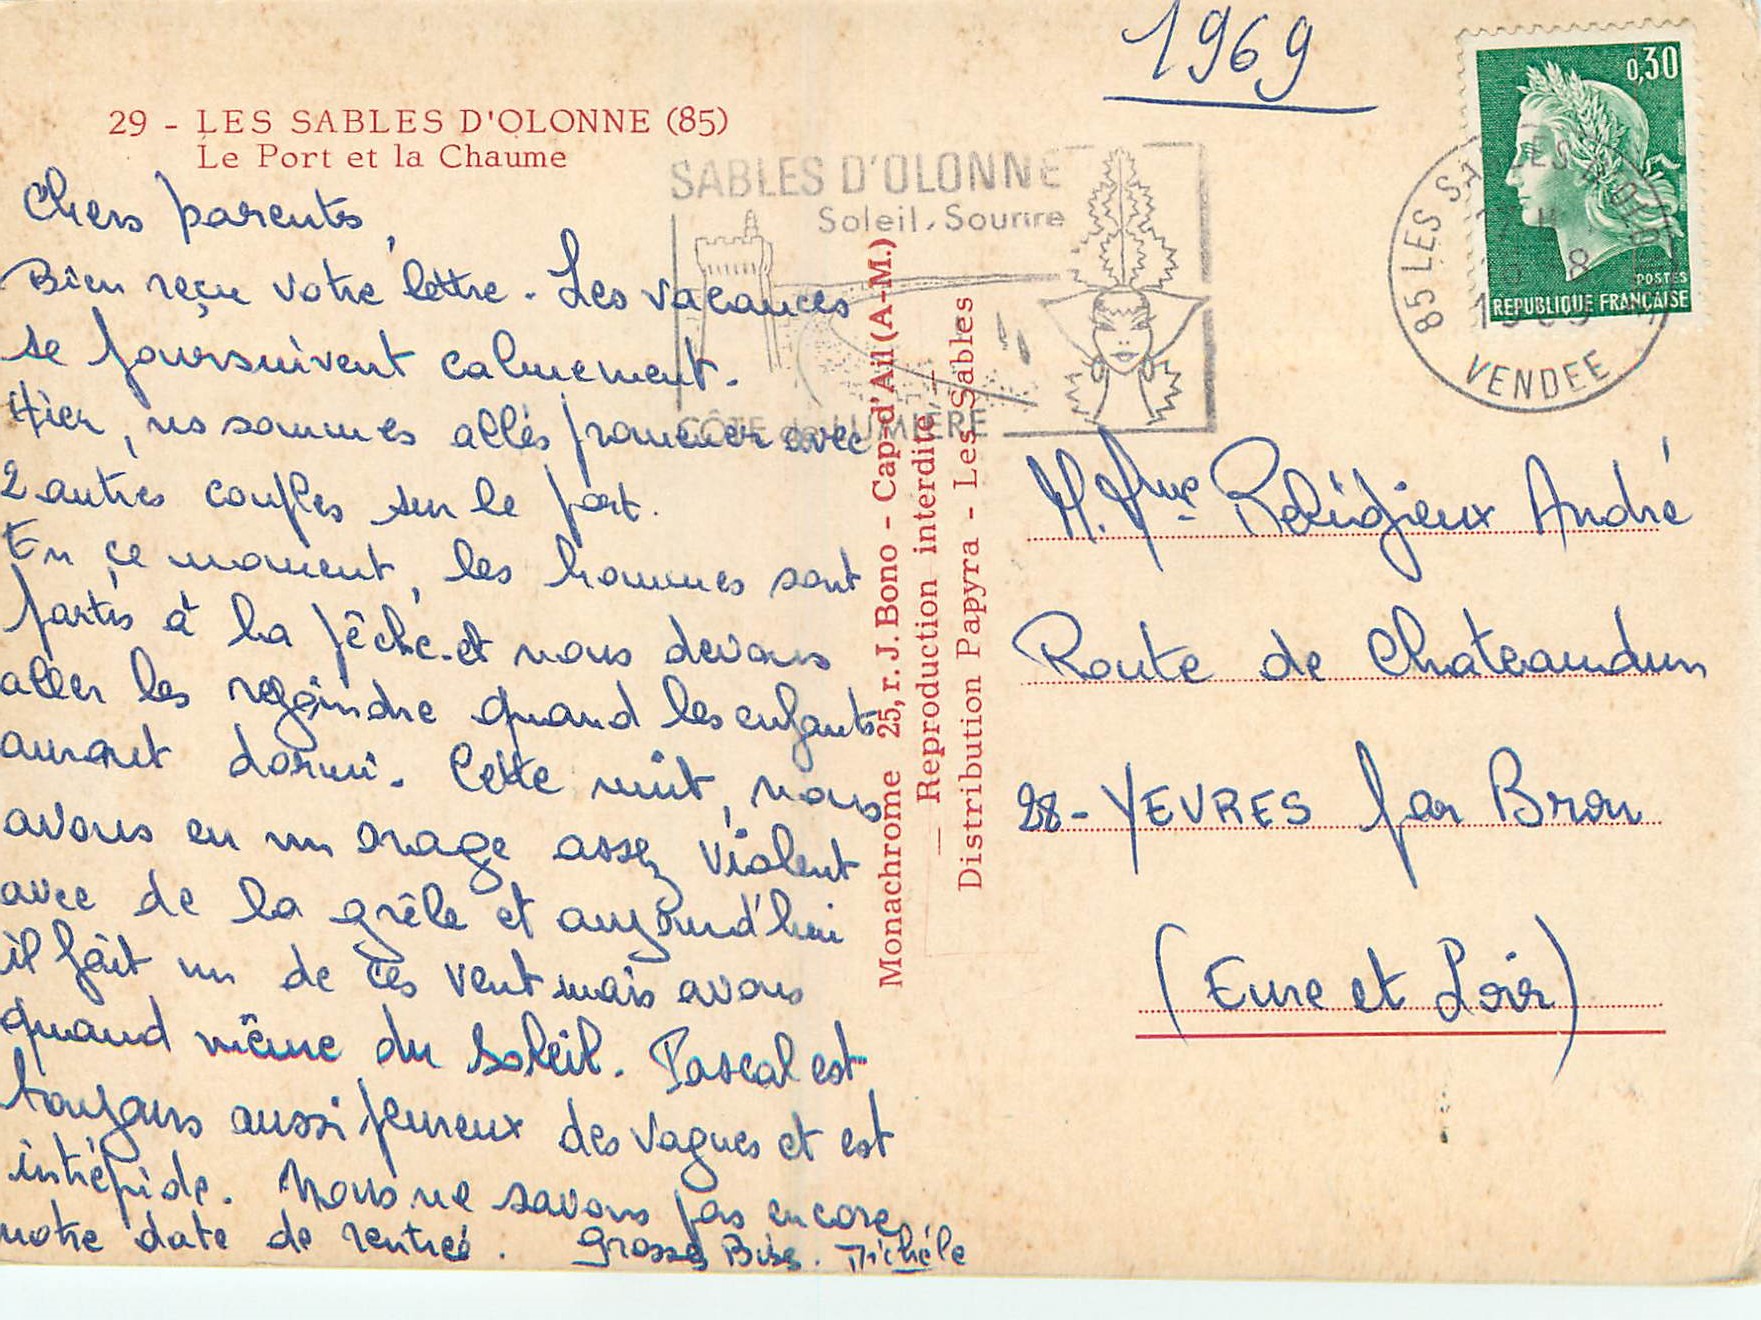 1969
29 - LES SABLES D'OLONNE (85)
Le Port et la Chaume
Chers parents,
Bien reçu votre lettre. Les vacances
se poursuivent calmement.
Hier, ns sommes allés promener avec
2 autres couples sur le port.
En ce moment, les hommes sont
partis à la pêche et nous devons
aller les rejoindre quand les enfants
auront dormi. Cette nuit, nous
avons eu un orage assez violent
avec de la grêle et aujourd'hui
il fait un de ces vent mais avons
quand même du soleil. Pascal est
toujours aussi peureux des vagues et est
intrépide. Nous ne savons pas encore
notre date de rentrée. Grosses Bises. Michéle
SABLES D'OLONNE
Soleil, Sourire
CÔTE de LUMIERE
Monachrome 25, r. J. Bono - Cap-d'Ail (A-M.)
— Reproduction interdite —
Distribution Papyra - Les Sables
0,30
POSTES
REPUBLIQUE FRANÇAISE
85 LES SABLES D'OLONNE
8
1969
VENDEE
M. Mme Religieux André
Route de Chateaudun
28 - YEVRES par Brou
(Eure et Loir)